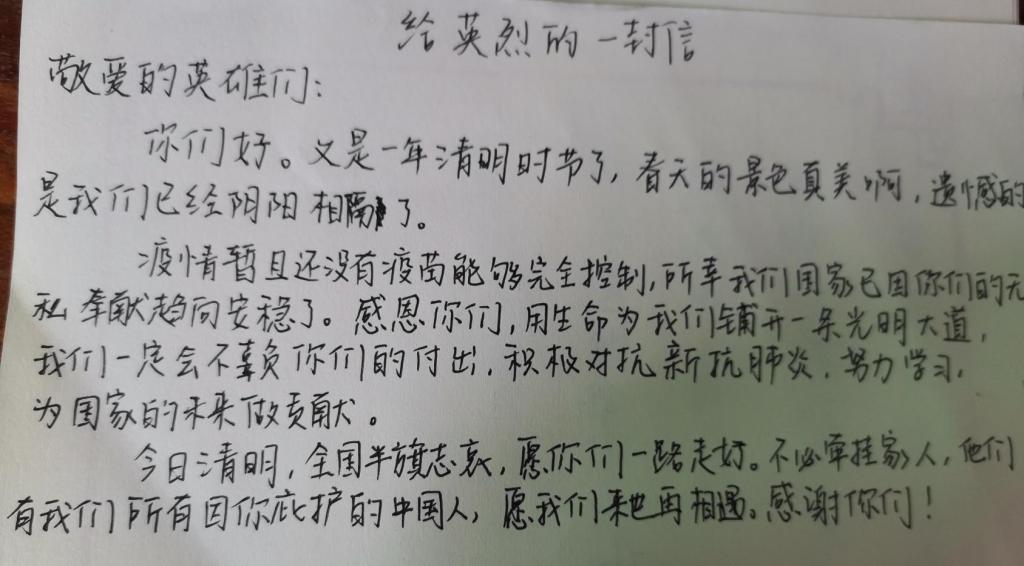 给英烈的一封信
敬爱的英雄们：
你们好。又是一年清明时节了，春天的景色真美啊，遗憾的
是我们已经阴阳相隔了。
疫情暂且还没有疫苗能够完全控制，所幸我们国家已因你们的无
私奉献趋向安稳了。感恩你们，用生命为我们铺开一条光明大道，
我们一定会不辜负你们的付出，积极对抗新抗肺炎，努力学习，
为国家的未来做贡献。
今日清明，全国半旗志哀，愿你们一路走好。不必牵挂家人，他们
有我们所有因你庇护的中国人，愿我们来世再相遇。感谢你们！